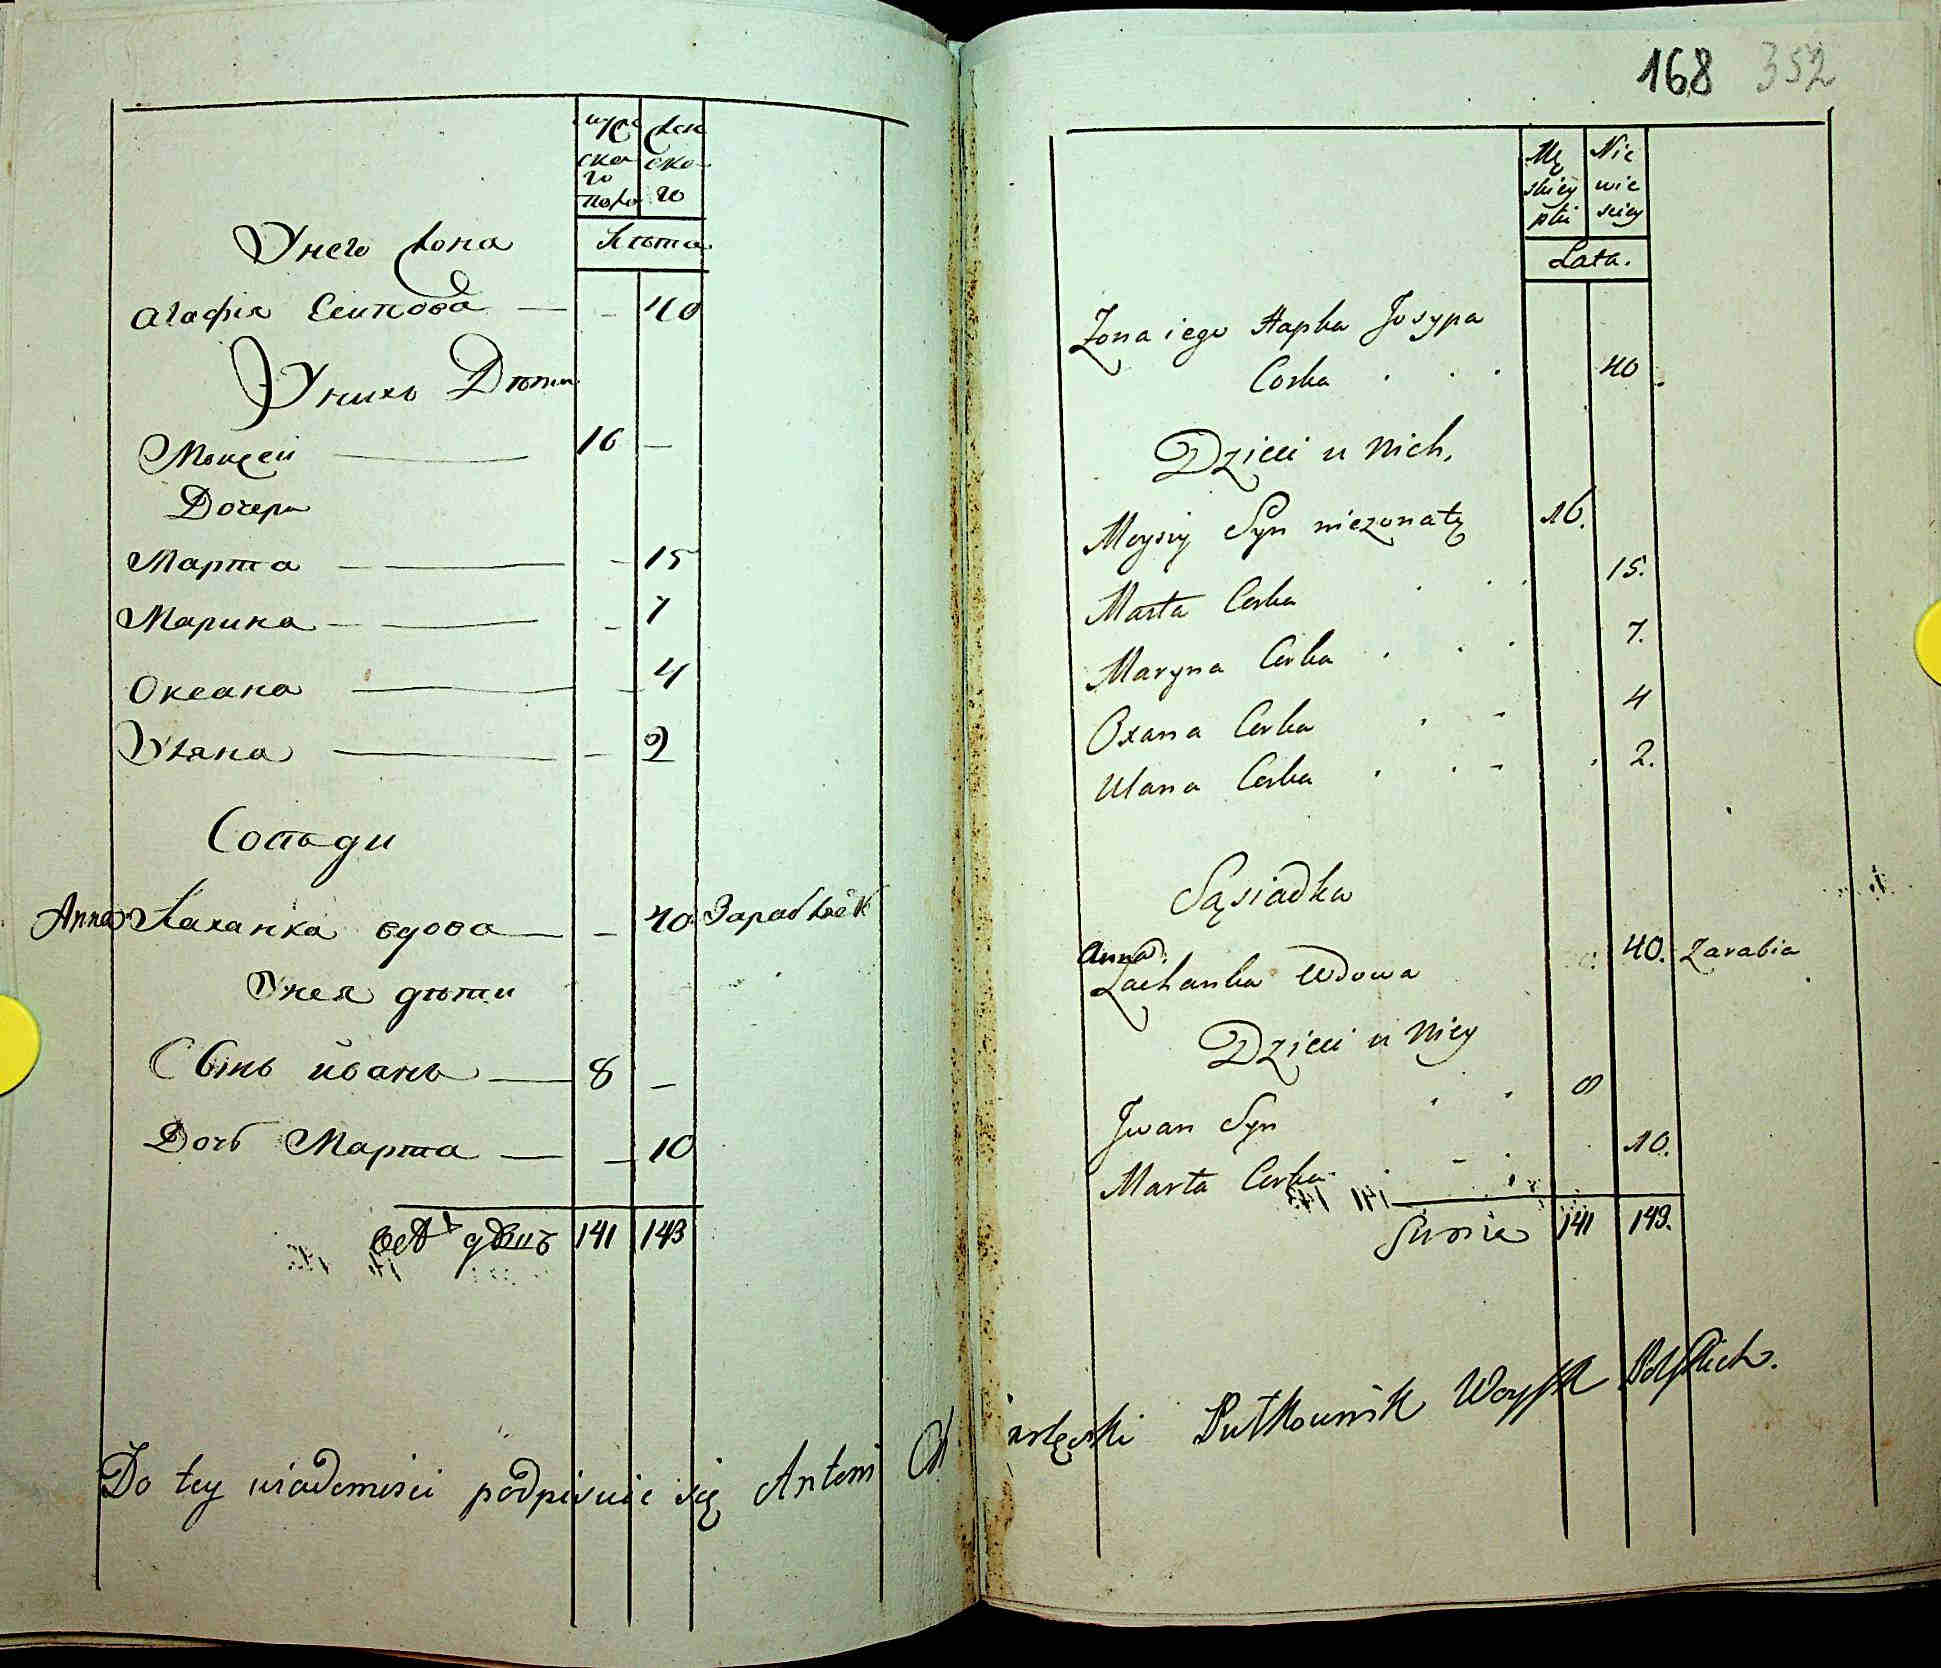 муж
ска
го
пола
жен
ска
го
Лѣта
Унего жона
Агафія Есипова — — 40
Унихъ Дѣти
Моисей — 16 —
Дочери
Марта — — 15
Марина — — 7
Оксана — — 4
Уляна — — 2
Сосѣди
Anna Лаханка вдова — — 40
Унея дѣти
Сынъ иванъ — 8 —
Дочь Марта — — 10
141 143
Do tey wiadomości podpisuie się Antoni
168 352
Mę
skiey
płci
Nie
wie
sciey
Lata.
Zona iego Hapka Josypa
Corka . . . 40.
Dzieci u Nich,
Moysiy Syn niezonaty 16.
Marta Corka . . . 15.
Maryna Corka . . . 7.
Oxana Corka . . 4
Ulana Corka . . . 2.
Sąsiadka
Anna
Lachanka Wdowa 40. Zarabia
Dzieci u Niey
Jwan Syn . . 8
Marta Corka . . 10.
Summa 141 143.
Pułkownik Woysk Polskich.